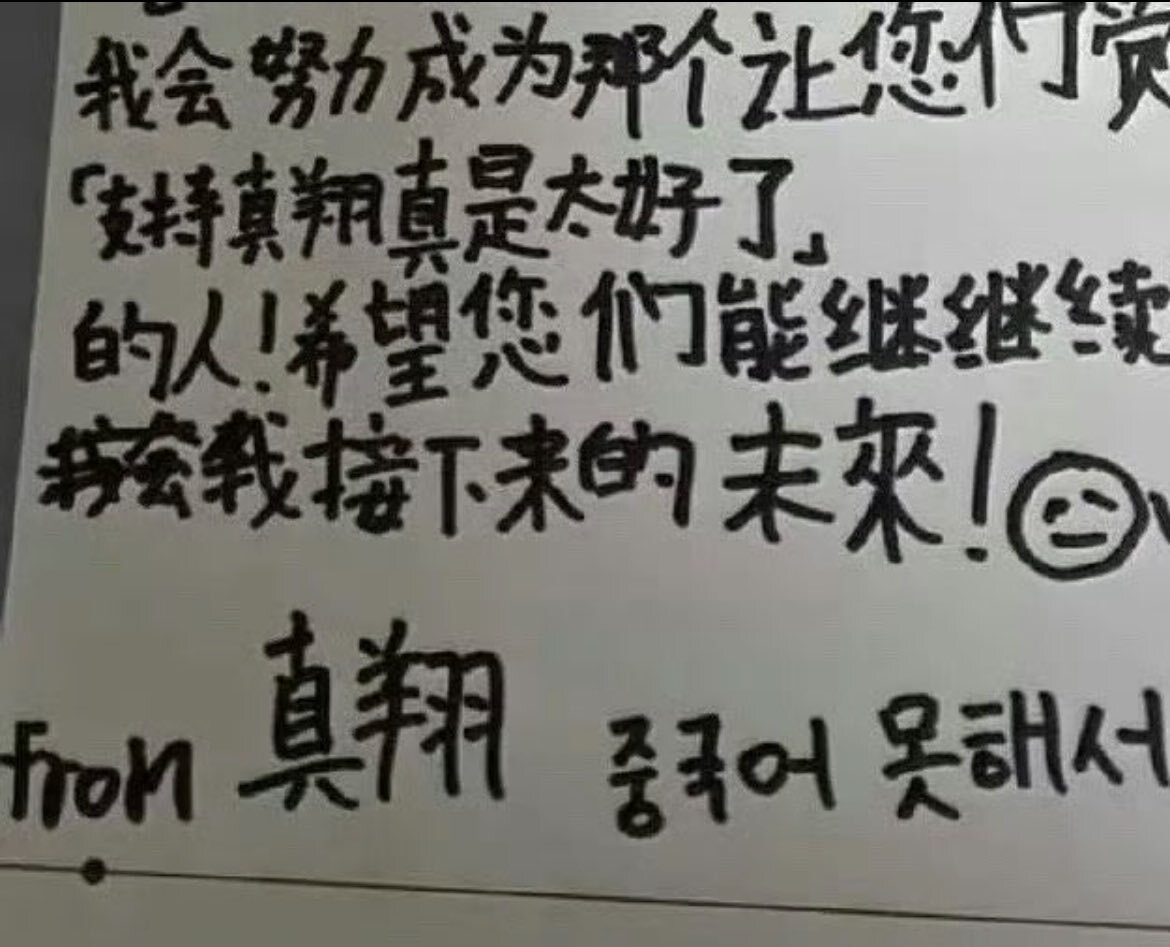 我会努力成为那个让您们赏
「支持真翔真是太好了」
的人!希望您们能继继续
我接下来的未來!
from 真翔 중국어 못해서